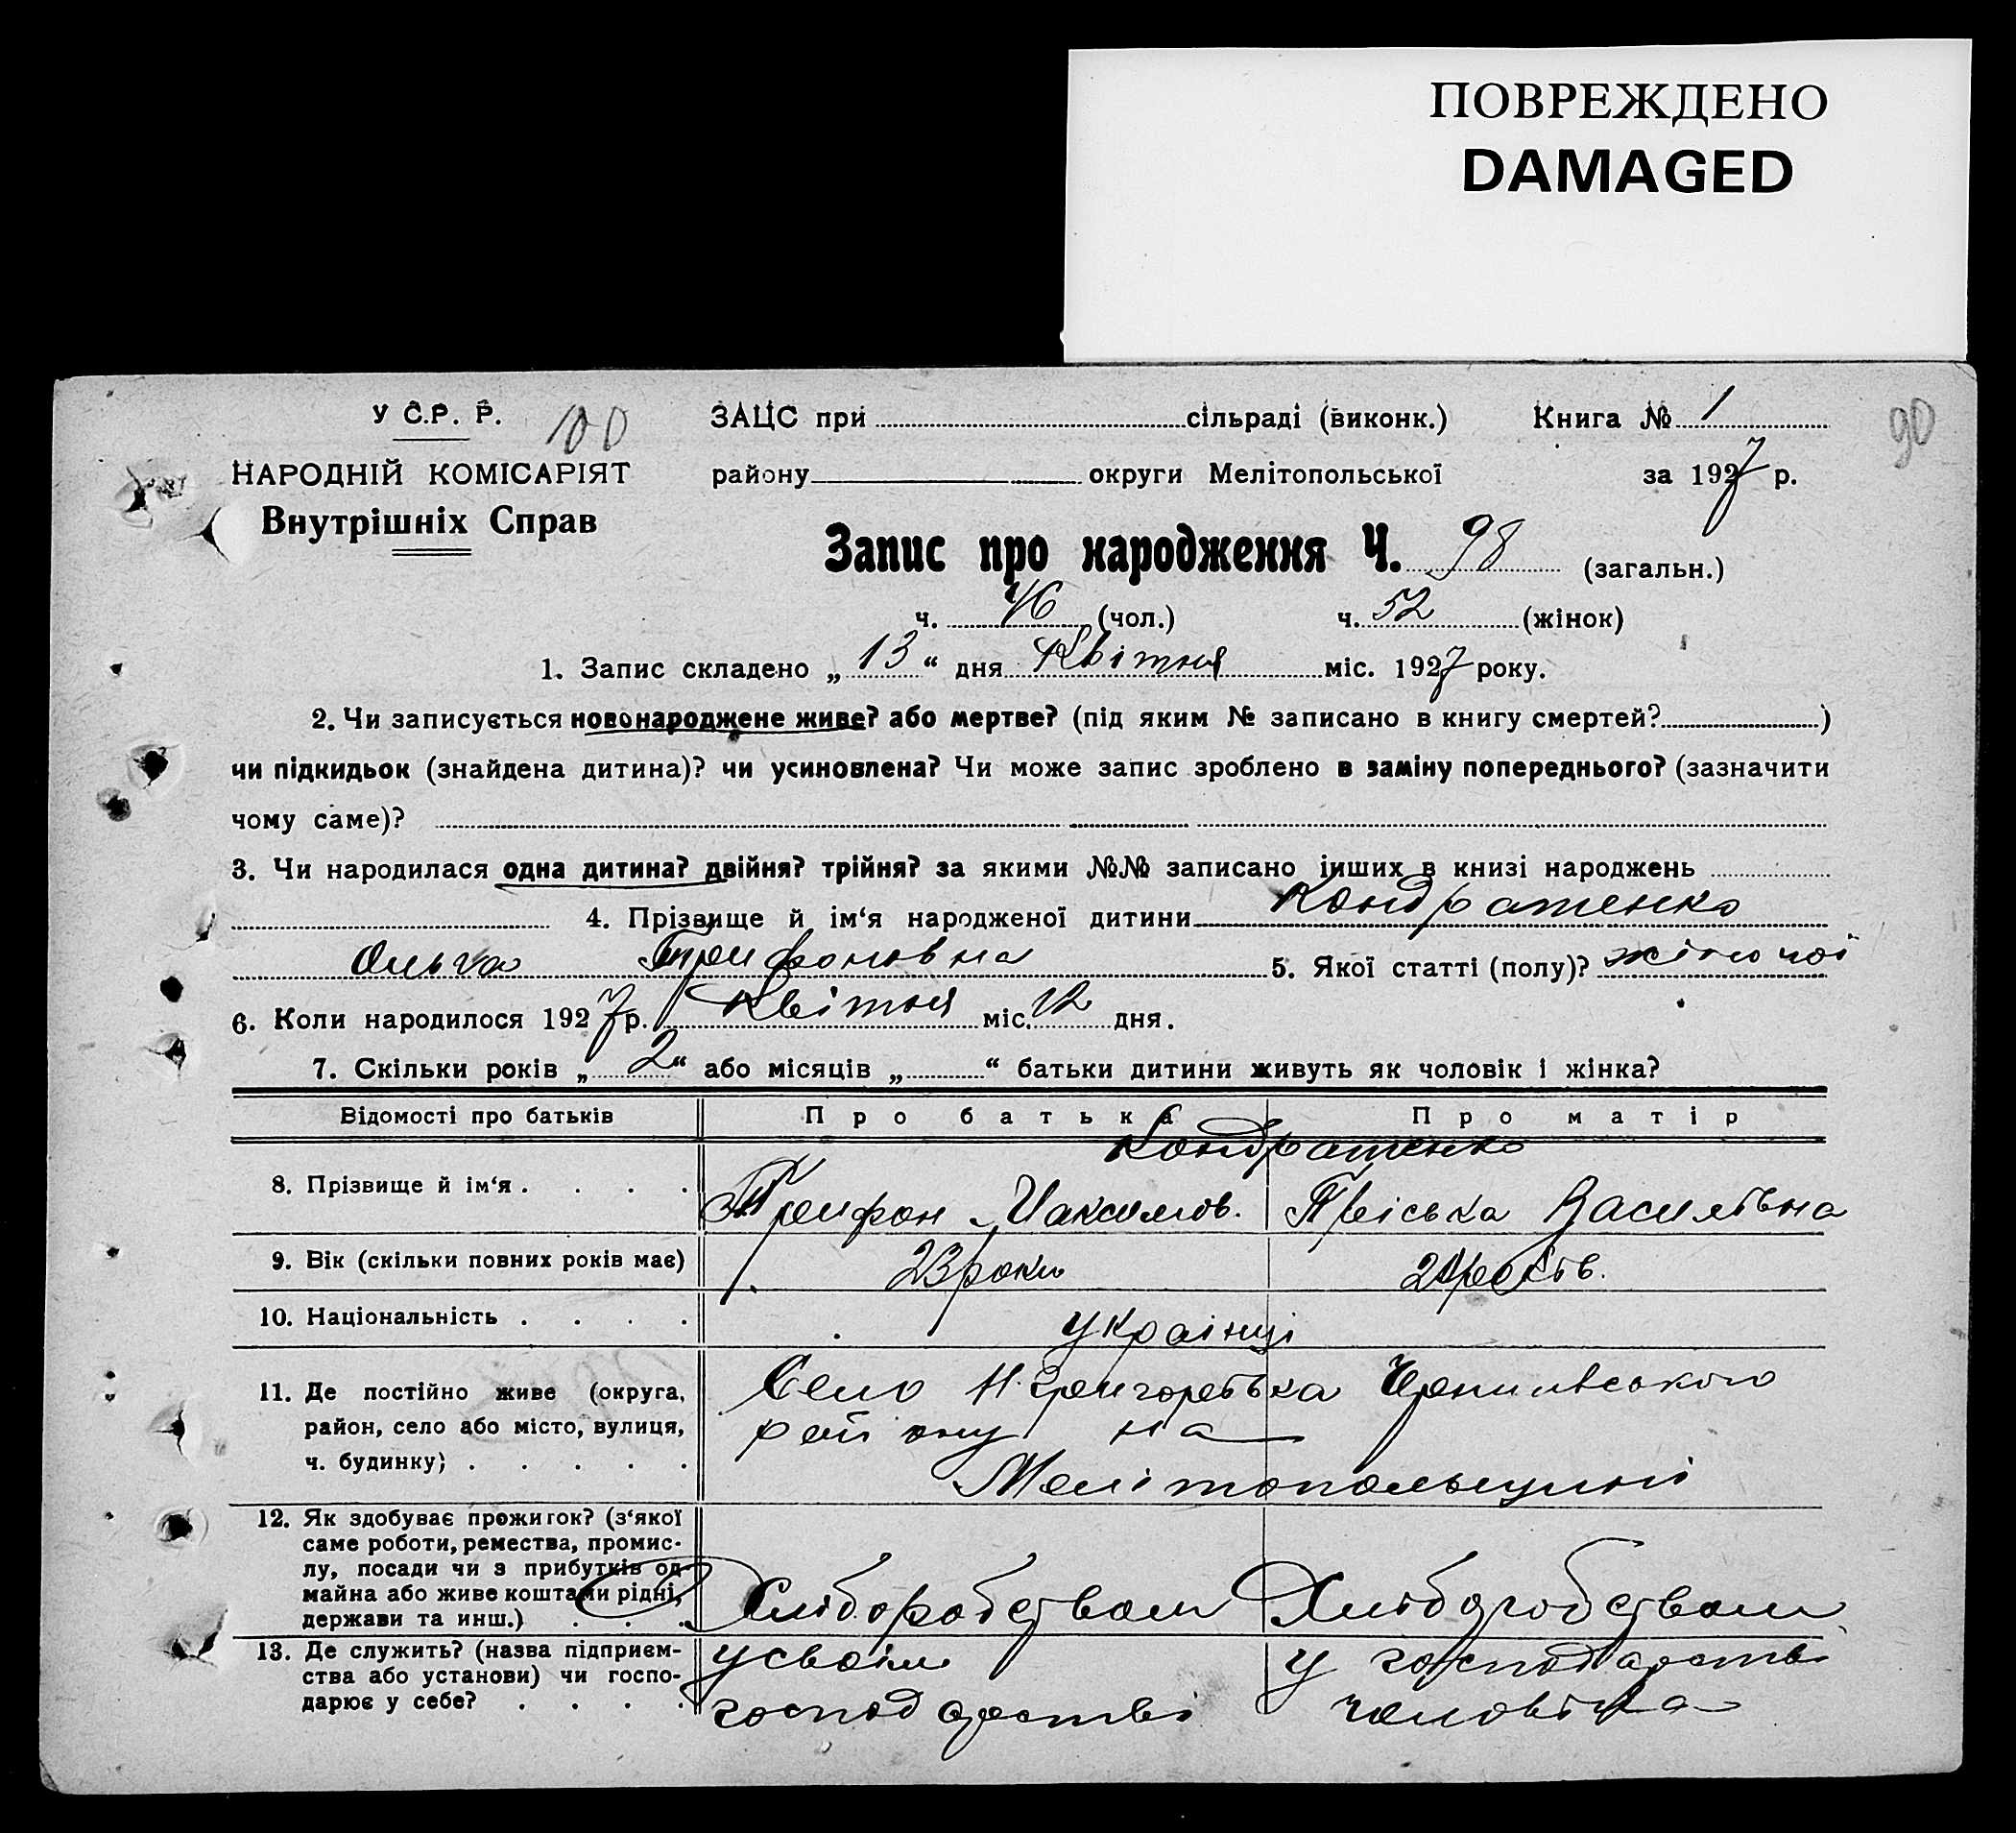 ПОВРЕЖДЕНО
DAMAGED
У С.Р. Р. 100 ЗАЦС при сільраді (виконк.) Книга № 1 90
НАРОДНІЙ КОМІСАРІЯТ району округи Мелітопольської за 1927 р.
Внутрішніх Справ
Запис про народження Ч. 98 (загальн.)
ч. 46 (чол.) ч. 52 (жінок)
1. Запис складено „ 13 “ дня Квітня міс. 1927 року.
2. Чи записується новонароджене живе? або мертве? (під яким № записано в книгу смертей? )
чи підкидьок (знайдена дитина)? чи усиновлена? Чи може запис зроблено в заміну попереднього? (зазначити
чому саме)?
3. Чи народилася одна дитина? двійня? трійня? за якими №№ записано інших в книзі народжень
4. Прізвище й ім‘я народженої дитини Кондратенко
Ольга Трифоновна 5. Якої статті (полу)? жіночої
6. Коли народилося 1927 р. Квітня міс. 12 дня.
7. Скільки років „ 2 “ або місяців „ “ батьки дитини живуть як чоловік і жінка?
Відомості про батьків Про батька Про матір
Кондратенко
8. Прізвище й ім‘я . . . . Трифон Максимов. Пріська Василівна
9. Вік (скільки повних років має) 23 роки років.
10. Національність . . . . українці
11. Де постійно живе (округа, Село Н. Григорівка Чернигівського
район, село або місто, вулиця, району на
ч. будинку) . . . . . Мелітопольщині
12. Як здобуває прожиток? (з‘якої
саме роботи, ремества, промис-
лу, посади чи з прибутків од
майна або живе коштами рідні, Хліборобством Хліборобством
держави та инш.) . . .
13. Де служить? (назва підприєм- у своїм у господарстві
ства або установи) чи госпо-
дарює у себе? . . . . господарстві чоловіка